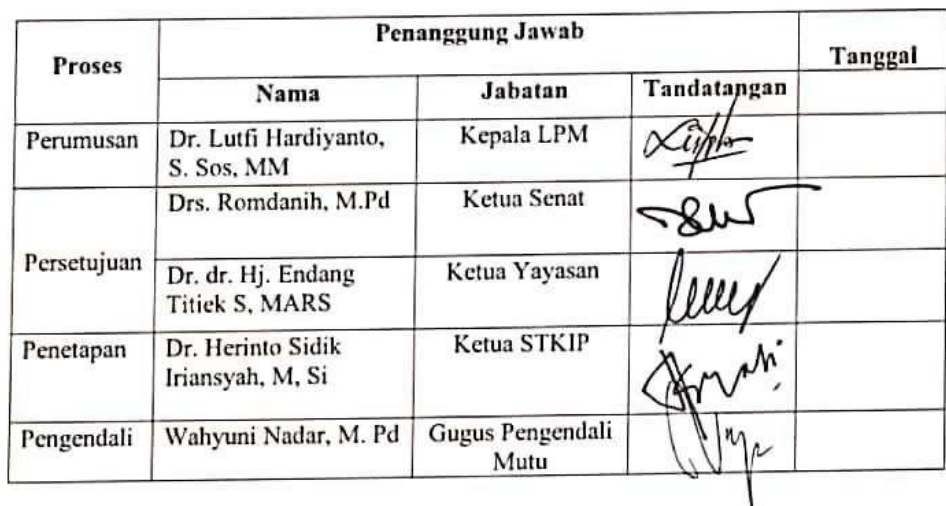 Proses
Penanggung Jawab
Tanggal
Nama
Jabatan
Tandatangan
Perumusan
Dr. Lutfi Hardiyanto,
S. Sos, MM
Kepala LPM
Persetujuan
Drs. Romdanih, M.Pd
Ketua Senat
Dr. dr. Hj. Endang
Titiek S, MARS
Ketua Yayasan
Penetapan
Dr. Herinto Sidik
Iriansyah, M, Si
Ketua STKIP
Pengendali
Wahyuni Nadar, M. Pd
Gugus Pengendali
Mutu